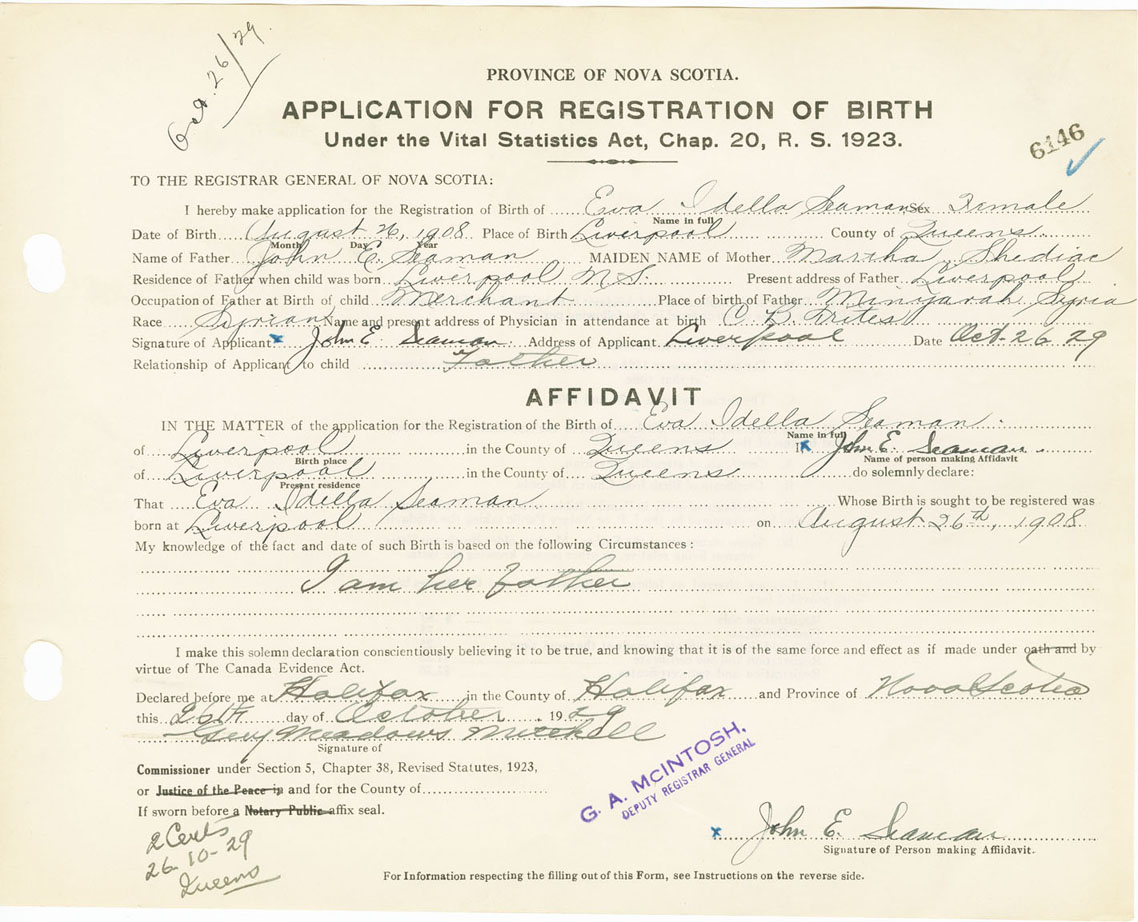 Oct. 26/29.
PROVINCE OF NOVA SCOTIA.
APPLICATION FOR REGISTRATION OF BIRTH
Under the Vital Statistics Act, Chap. 20, R. S. 1923.
6146
TO THE REGISTRAR GENERAL OF NOVA SCOTIA:
I hereby make application for the Registration of Birth of Eva Idella Seaman Sex Female
Name in full
Date of Birth August 26, 1908 Place of Birth Liverpool County of Queens
Month Day Year
Name of Father John E. Seaman MAIDEN NAME of Mother Martha Shediac
Residence of Father when child was born Liverpool N.S. Present address of Father Liverpool
Occupation of Father at Birth of child Merchant Place of birth of Father Minyarah, Syria
Race Syrian Name and present address of Physician in attendance at birth C. B. Trites
Signature of Applicant x John E. Seaman. Address of Applicant Liverpool Date Oct. 26 29
Relationship of Applicant to child Father
AFFIDAVIT
IN THE MATTER of the application for the Registration of the Birth of Eva Idella Seaman
Name in full
of Liverpool in the County of Queens I x John E. Seaman.
Birth place Name of person making Affidavit
of Liverpool in the County of Queens do solemnly declare:
Present residence
That Eva Idella Seaman Whose Birth is sought to be registered was
born at Liverpool on August 26th, 1908
My knowledge of the fact and date of such Birth is based on the following Circumstances :
I am her father
I make this solemn declaration conscientiously believing it to be true, and knowing that it is of the same force and effect as if made under oath and by
virtue of The Canada Evidence Act.
Declared before me at Halifax in the County of Halifax and Province of Nova Scotia
this 26th day of October, 1929
Guy Meadows Mitchell
Signature of
Commissioner under Section 5, Chapter 38, Revised Statutes, 1923,
or Justice of the Peace in and for the County of
If sworn before a Notary Public affix seal.
G. A. McINTOSH,
DEPUTY REGISTRAR GENERAL
x John E. Seaman
Signature of Person making Affiidavit.
2 Certs
26-10-29
Queens
For Information respecting the filling out of this Form, see Instructions on the reverse side.